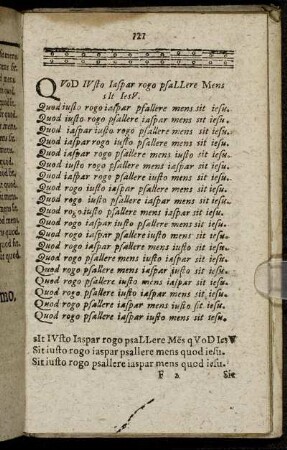 121
QVoD IVsto Iaspar rogo psaLLere Mens
sIt IesV.
Quod iusto rogo iaspar psallere mens sit iesu.
Quod iusto rogo psallere iaspar mens sit iesu.
Quod iaspar iusto rogo psallere mens sit iesu.
Quod iaspar rogo iusto psallere mens sit iesu.
Quod iaspar rogo psallere mens iusto sit iesu.
Quod iusto rogo psallere mens iaspar sit iesu.
Quod iaspar rogo psallere iusto mens sit iesu.
Quod rogo iusto iaspar psallere mens sit iesu.
Quod rogo iusto psallere iaspar mens sit iesu.
Quod rogo iusto psallere mens iaspar sit iesu.
Quod rogo iaspar iusto psallere mens sit iesu.
Quod rogo iaspar psallere iusto mens sit iesu.
Quod rogo iaspar psallere mens iusto sit iesu.
Quod rogo psallere mens iusto iaspar sit iesu.
Quod rogo psallere mens iaspar iusto sit iesu.
Quod rogo psallere iusto iaspar mens sit iesu.
Quod rogo psallere iusto mens iaspar sit iesu.
Quod rogo psallere iaspar mens iusto sit iesu.
Quod rogo psallere iaspar iusto mens sit iesu.
sIt IVsto Iaspar rogo psaLLere Mēs qVoD IesV
Sit iusto rogo iaspar psallere mens quod iesu.
Sit iusto rogo psallere iaspar mens quod iesu.
F 2. Sit